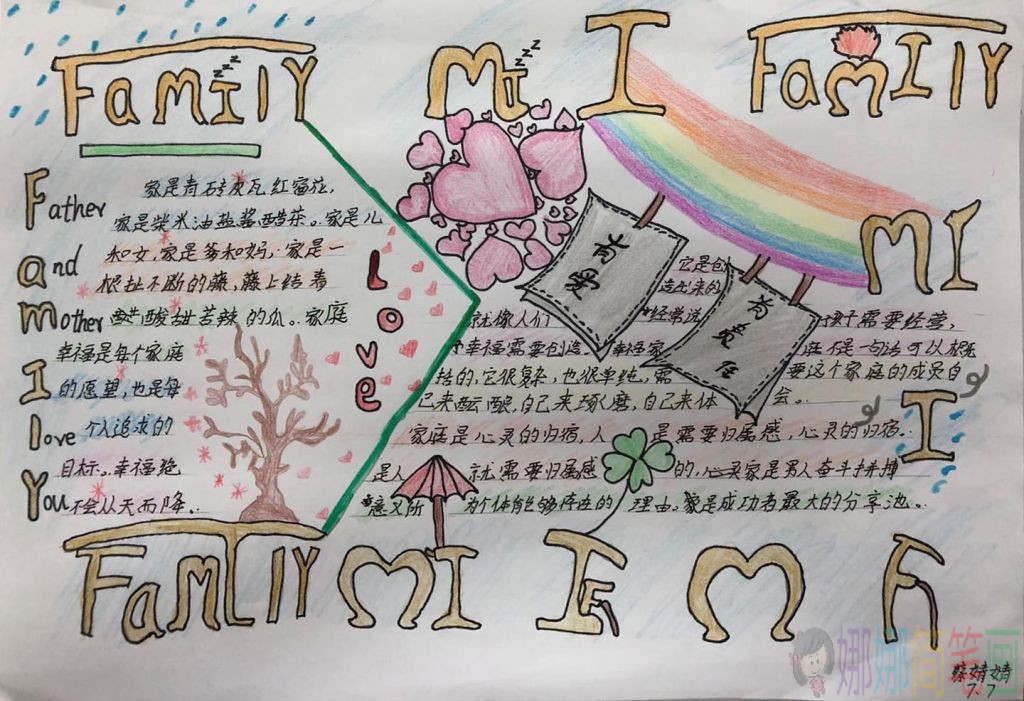 FAMILY
MI
I
FAMILY
zzz
zzz
MI
I
Father
and
Mother
I
love
You
家是青砖灰瓦红窗花,
家是柴米油盐酱醋茶。家是儿
和女,家是爷和妈,家是一
根扯不断的藤,藤上结着
酸甜苦辣的瓜。家庭
幸福是每个家庭
的愿望,也是每
个人追求的
目标。幸福绝
不会从天而降。
Love
有爱
有爱
它是创
造出来的
就像人们
经常说
孩子需要经营,
幸福需要创造。幸福家
庭不是一句话可以概
括的,它很复杂,也很单纯,需
要这个家庭的成员自
己来酝酿,自己来琢磨,自己来体
会。
家庭是心灵的归宿,人
是需要归属感,心灵的归宿。
是人
就需要归属感
的,
家是男人奋斗
意义所
为个体能够存在的
理由。家是成功者最大的分享池。
FAMILY
MI
F
M
F
娜娜简笔画
蔡婧婧
7.7